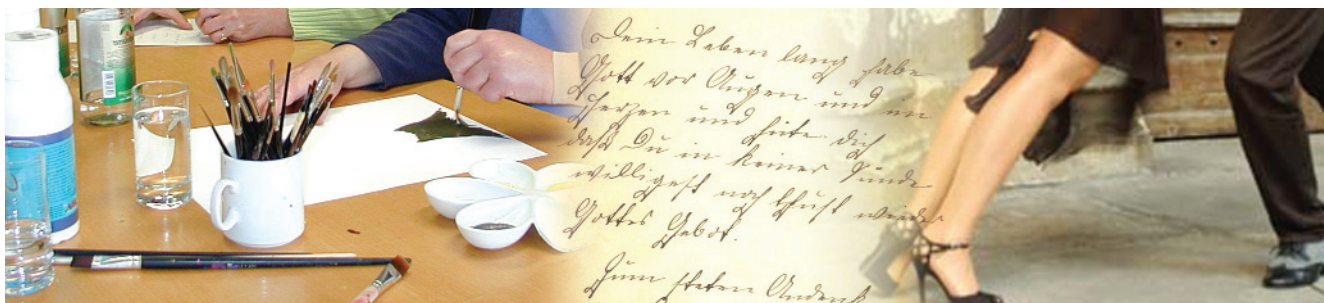 Dein Leben lang habe
Gott vor Augen und im
Herzen und hüte dich
daß Du in keiner Sünde
willigest noch thust wieder
Gottes Gebot.
Zum steten Andenk